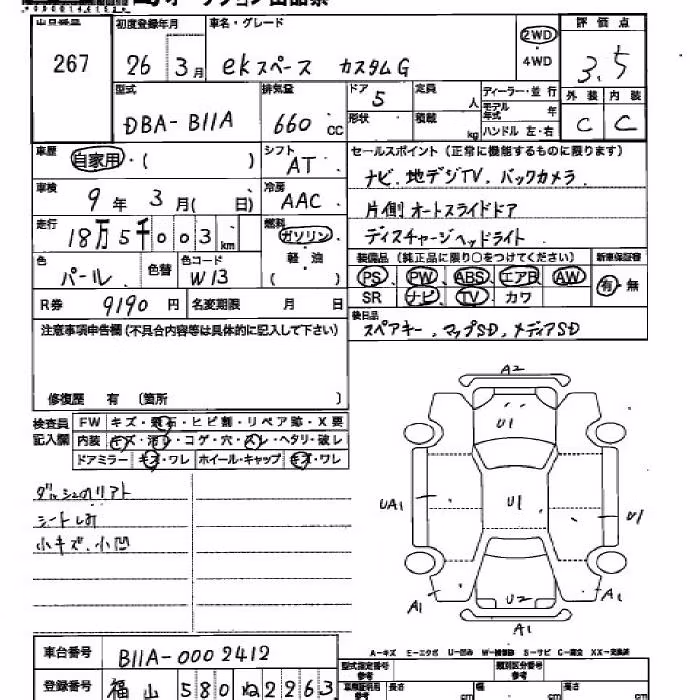 オークション出品票
出品番号 267
初度登録年月 26 3月
車名・グレード ekスペース カスタムG
2WD・4WD
評価点 3.5
型式 DBA-B11A
排気量 660 CC
ドア 5
形状
定員 人
積載 kg
ディーラー・並行
モデル年式 年
ハンドル 左・右
外装 C 内装 C
車歴 自家用・( )
シフト AT
セールスポイント(正常に機能するものに限ります)
ナビ.地デジTV.バックカメラ
車検 9年 3月( 日)
冷房 AAC
片側オートスライドドア
走行 18万5千003km
燃料 ガソリン・軽油 ( )
ディスチャージヘッドライト
色 パール 色替
色コード W13
装備品(純正品に限り○をつけてください)
新車保証書 有・無
PS PW ABS エアB AW
SR ナビ TV カワ
R券 9190円
名変期限 月 日
後日品
スペアキー.マップSD.メディアSD
注意事項申告欄(不具合内容等は具体的に記入して下さい)
修復歴 有 (箇所 )
検査員記入欄
FW キズ・飛石・ヒビ割・リペア跡・X要
内装 キズ・汚レ・コゲ・穴・スレ・ヘタリ・破レ
ドアミラー キズ・ワレ ホイール・キャップ キズ・ワレ
シートしみ
小キズ.小凹
A2
U1
UA1
U1
U1
U2
A1
A1
A1
車台番号 B11A-0002412
A-キズ E-エクボ U-凹み W-補修跡 S-サビ C-腐食 XX-交換済
登録番号 福山 580 ね2263
型式指定番号
類別区分番号
長さ cm
幅 cm
高さ cm